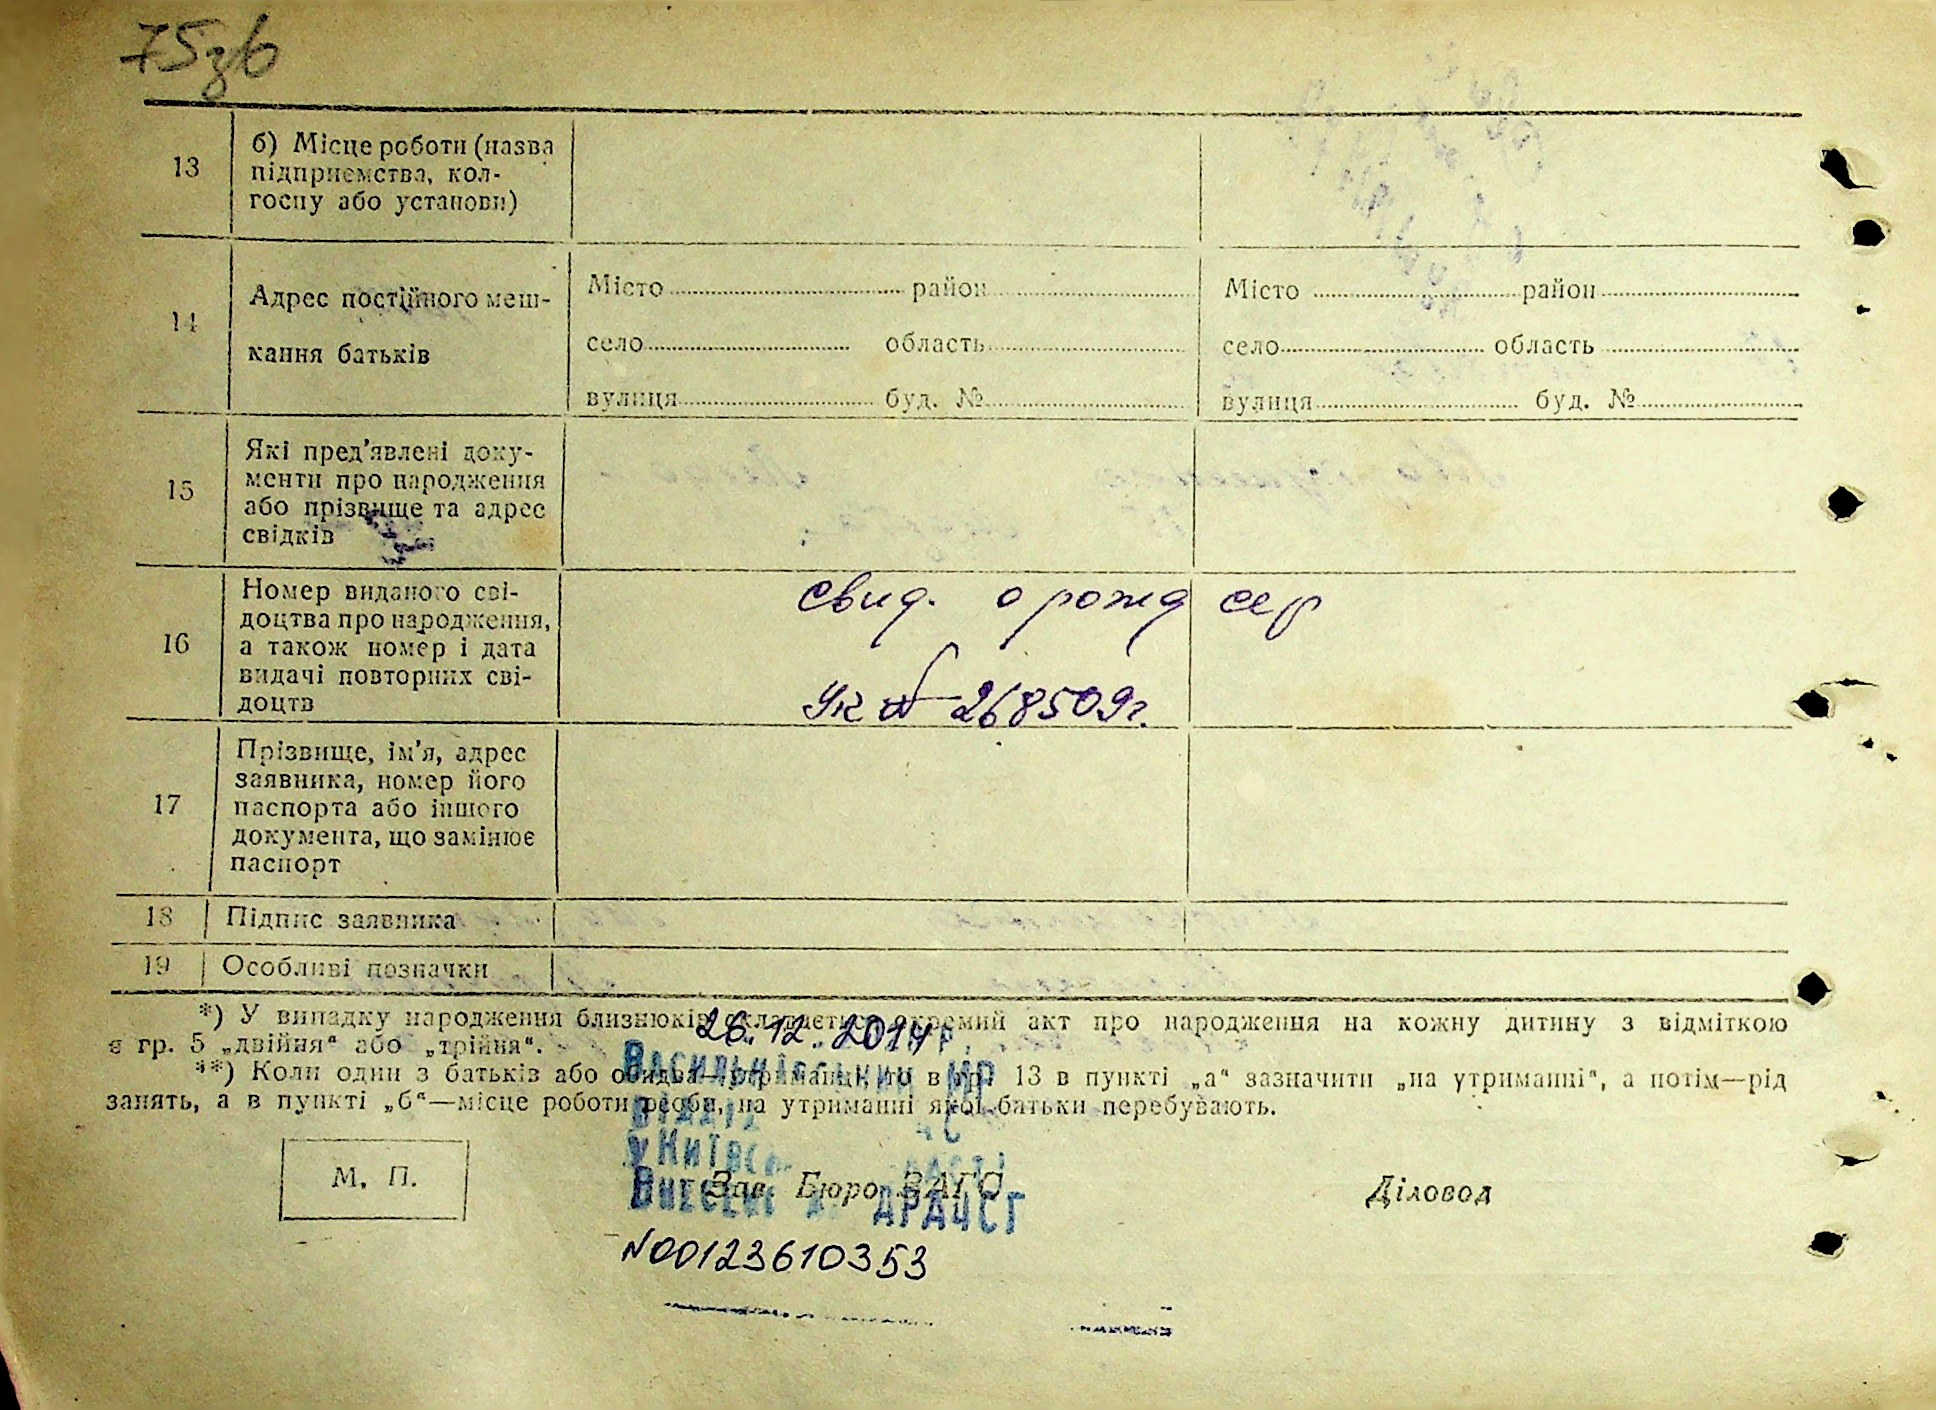 75зв
13
б) Місце роботи (назва
підприємства, кол-
госпу або установи)
14
Адрес постійного меш-
кання батьків
Місто район
село область
вулиця буд. №
Місто район
село область
вулиця буд. №
15
Які пред'явлені доку-
менти про народження
або прізвище та адрес
свідків
16
Номер виданого сві-
доцтва про народження,
а також номер і дата
видачі повторних сві-
доцтв
свид. о рожд сер
№ 268509г.
17
Прізвище, ім'я, адрес
заявника, номер його
паспорта або іншого
документа, що замінює
паспорт
18
Підпис заявника
19
Особливі позначки
*) У випадку народження близнюків складається окремий акт про народження на кожну дитину з відміткою
в гр. 5 „двійня“ або „трійня“.
26.12.2014р.
**) Коли один з батьків або обидва—утриманці, то в гр. 13 в пункті „а“ зазначити „на утриманні“, а потім—рід
занять, а в пункті „б“—місце роботи особи, на утриманні якої батьки перебувають.
Васильківський МР
Відділ
у Київс
Внесено ДРАЦСГ
М. П.
Зав. Бюро ЗАГС
Діловод
N00123610353